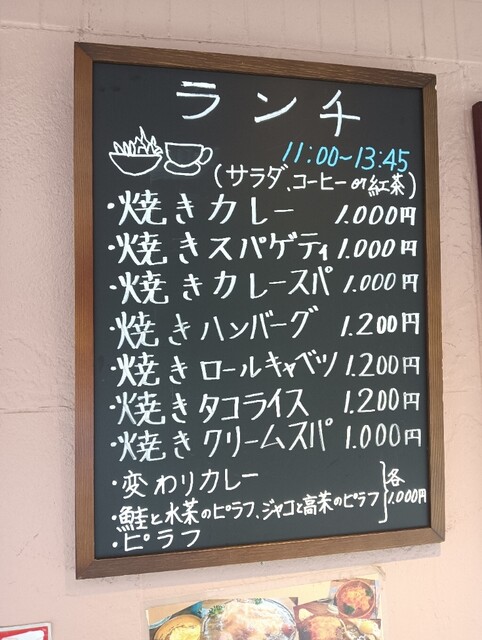 ランチ
11:00~13:45
(サラダ、コーヒー or 紅茶)
・焼きカレー 1.000円
・焼きスパゲティ 1.000円
・焼きカレースパ 1.000円
・焼きハンバーグ 1.200円
・焼きロールキャベツ 1.200円
・焼きタコライス 1.200円
・焼きクリームスパ 1.000円
・変わりカレー
・鮭と水菜のピラフ、ジャコと高菜のピラフ
・ピラフ
各
1.000円